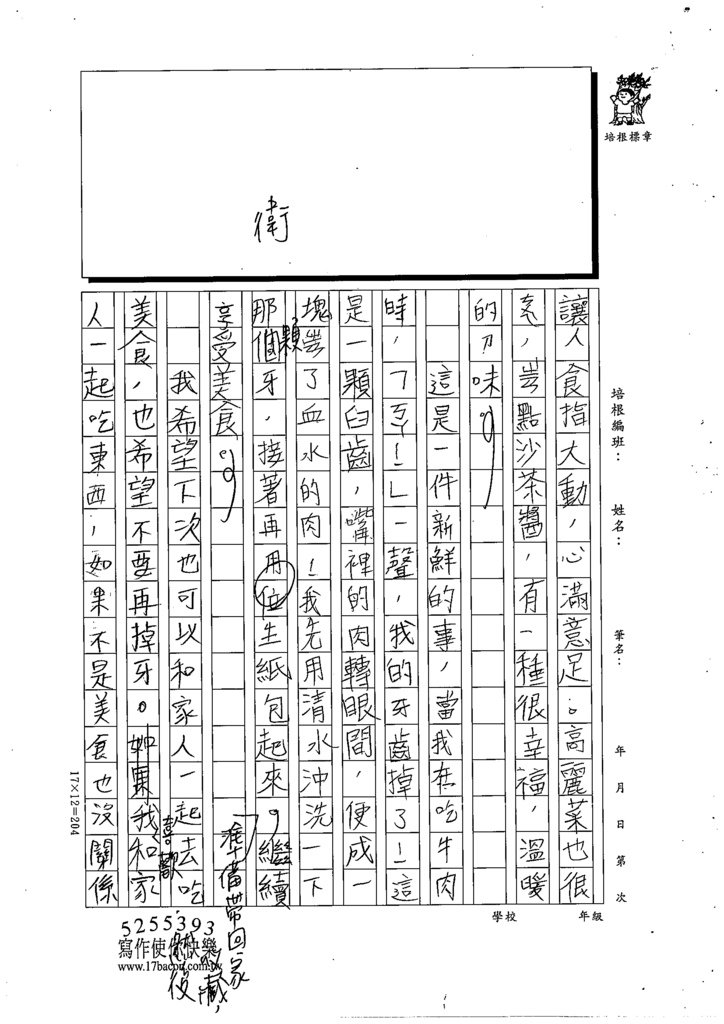 培根標章
衛
培根編班： 姓名： 筆名： 年 月 日 第 次
學校 年級
讓人食指大動，心滿意足。高麗菜也很
亮，尝點沙茶醬，有一種很幸福，溫暖
的味。
這是一件新鮮的事，當我在吃牛肉
時，「歪！」一聲，我的牙齒掉了！這
是一顆臼齒，嘴裡的肉轉眼間，便成一
塊尝了血水的肉！我先用清水沖洗一下
那個顆牙，接著再用位生紙包起來。繼續
準備帶回家
收藏，
然後
享受美食。
我希望下次也可以和家人一起去吃
美食，也希望不要再掉牙。如果我和家
喜歡
人一起吃東西，如果不是美食也沒關係
17×12=204
5255393
寫作使你快樂
www.17bacon.com.tw